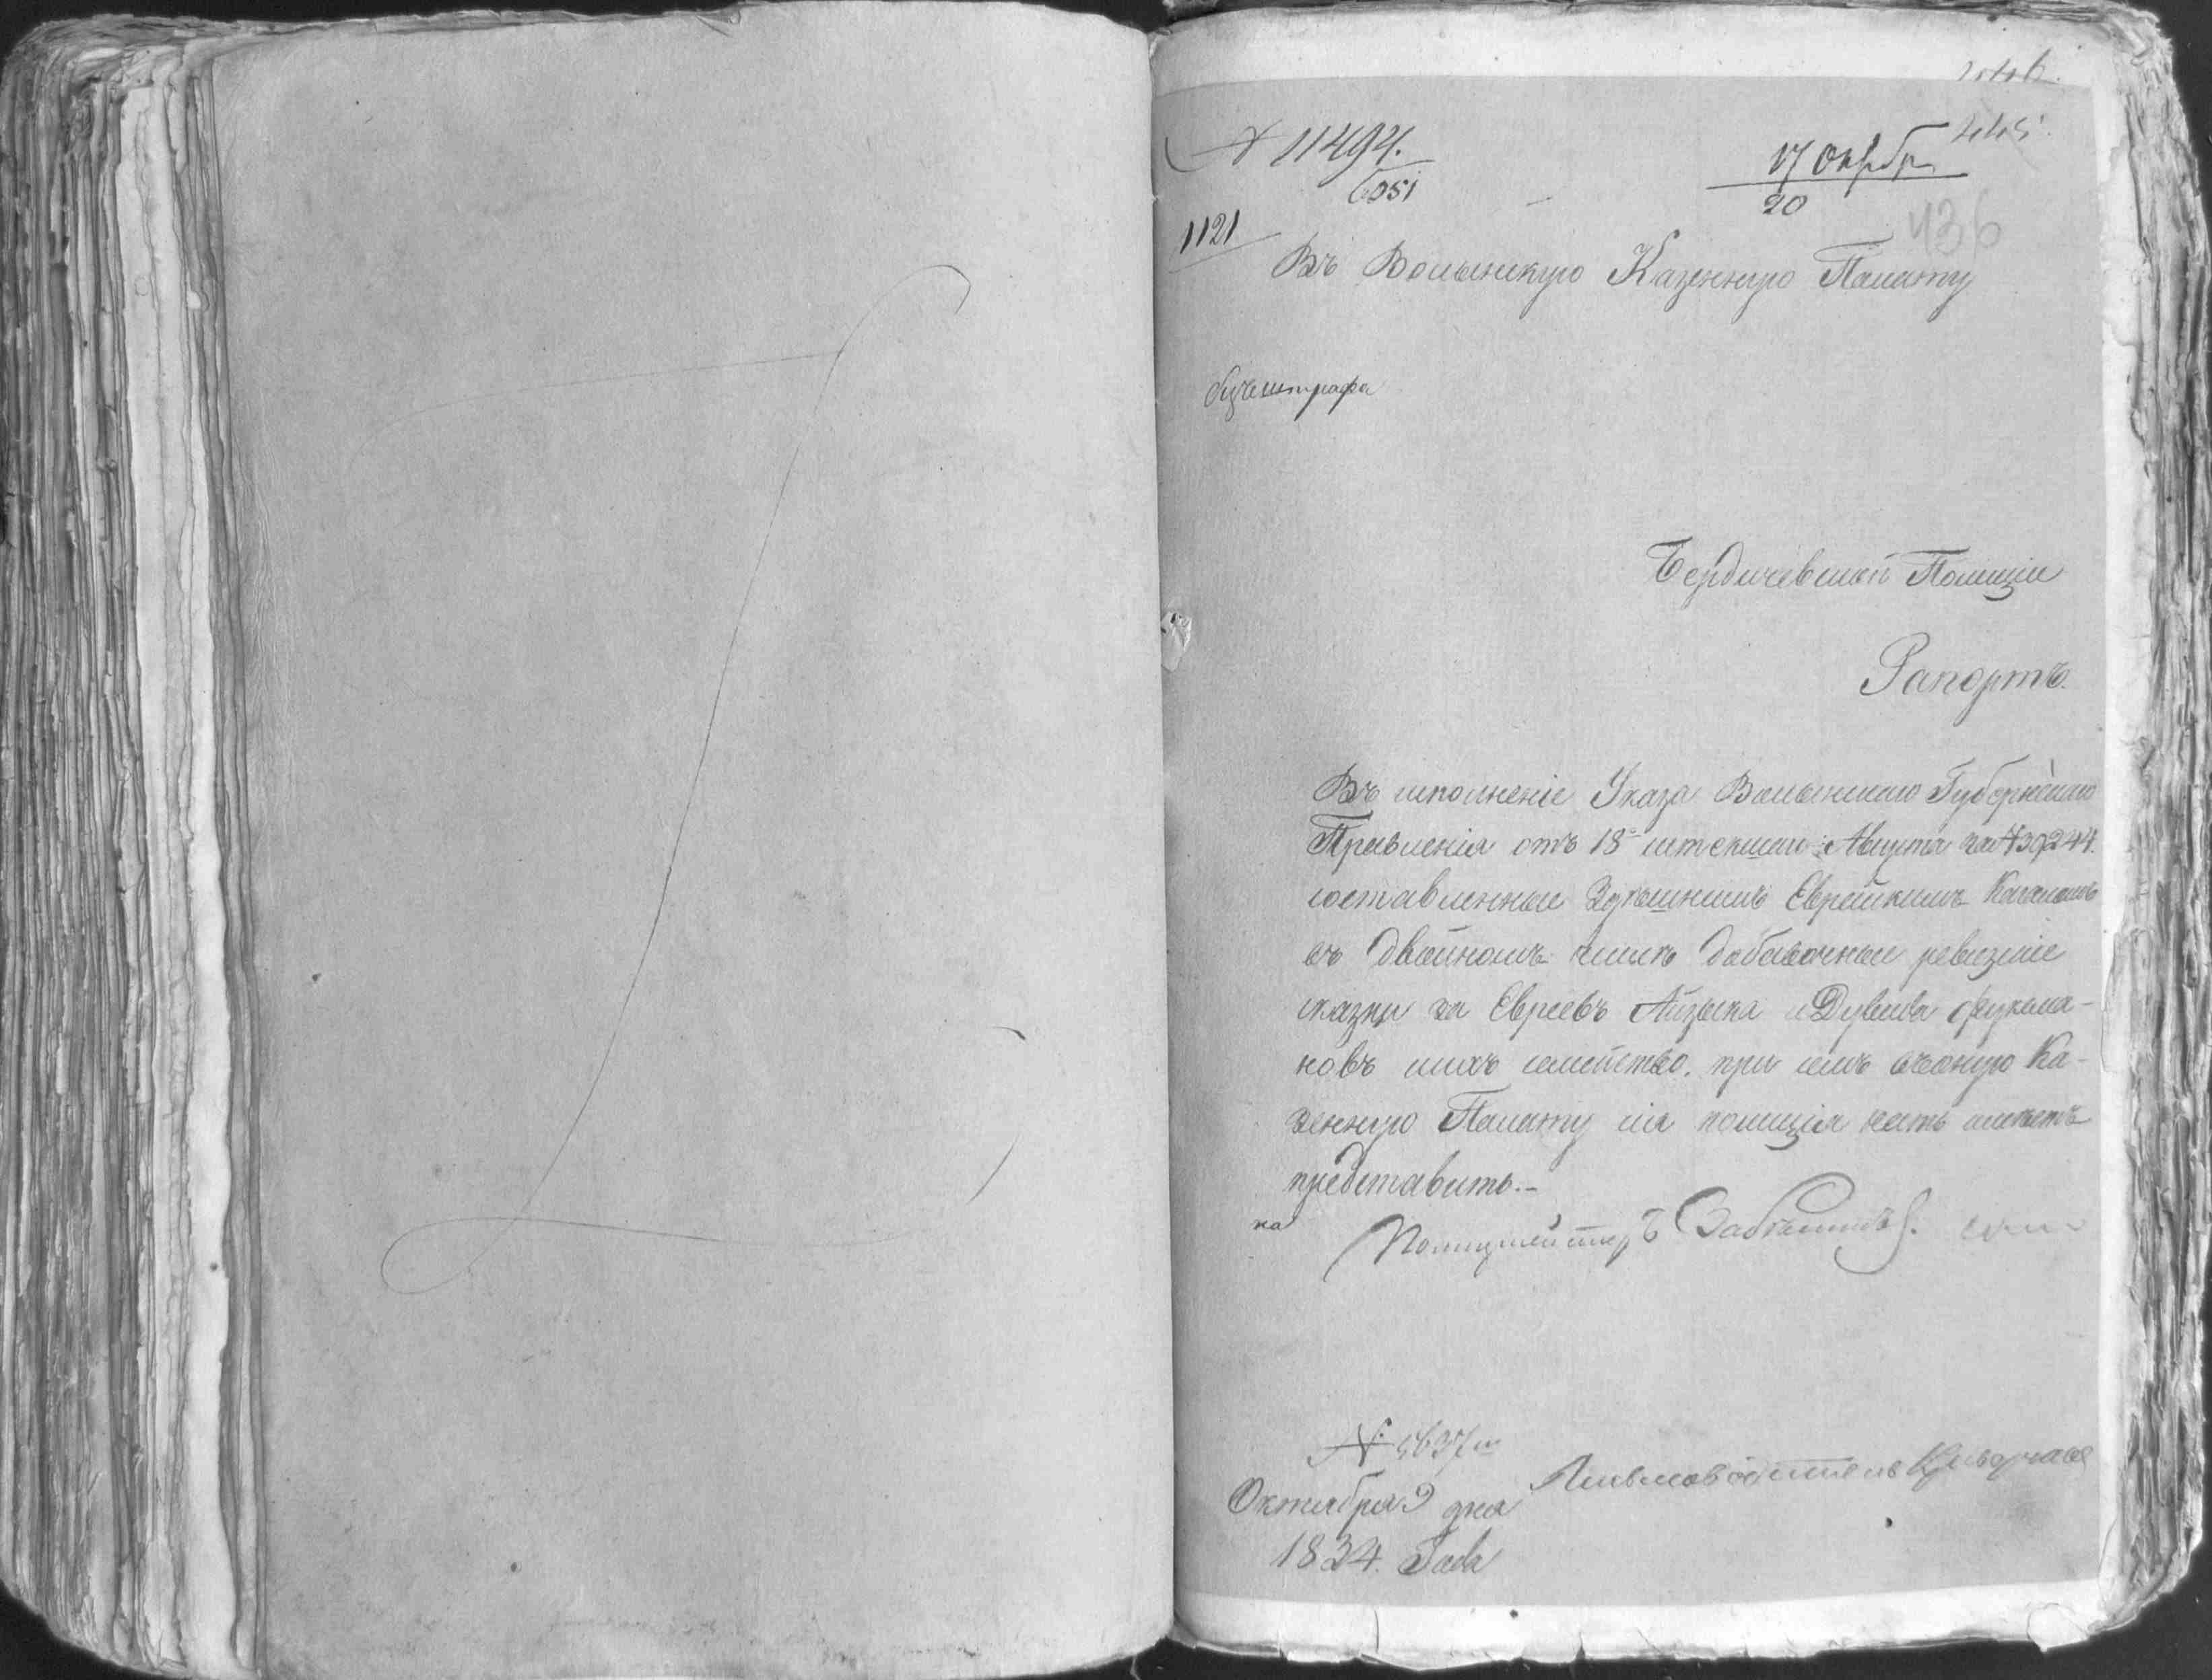 № 11494.
6051
17 Октбр
20
445
436
1121
Въ Волынскую Казенную Палату
безъ штрафа
Бердичевской Полиции
Рапортъ.
Въ исполненіе Указа Волынскаго Губернскаго
Правленія отъ 18 истекшаго Августа за № 39244.
составленные Здѣшнимъ Еврейскимъ Кагаломъ
въ двойномъ числѣ добавочные ревизкіе
сказки на Евреевъ Айзыка и Дувида Фуксма-
новъ ихъ семейство. при семъ въ оную Ка-
зенную Палату сія полиція честь имѣетъ
представить.-
Полицмейстеръ
№ 4637
Октября 9 дня
Письмоводитель
1834. Года